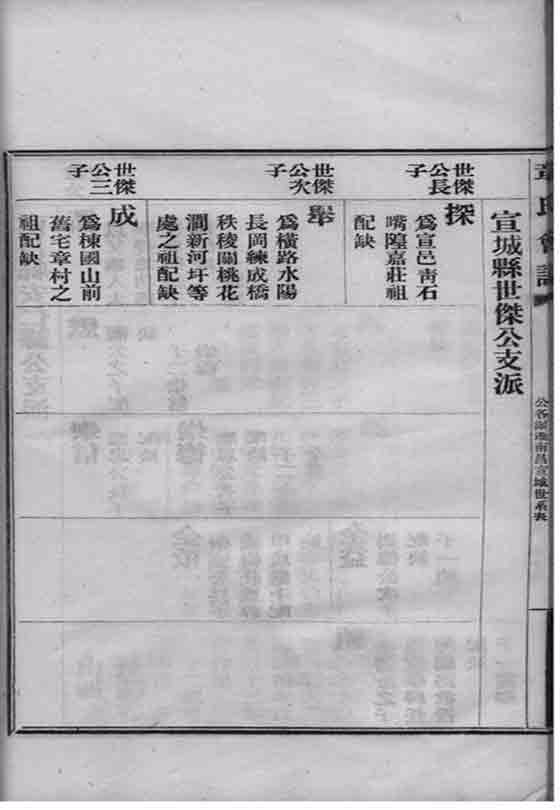 章氏會譜
公各派遷南昌宣城世系表
宣城縣世傑公支派
世傑
公長
子
探
為宣邑靑石
嘴隍嘉莊祖
配缺
世傑
公次
子
舉
為橫路水陽
長岡練成橋
秩稜關桃花
澗新河圩等
處之祖配缺
世傑
公三
子
成
為棟國山前
舊宅章村之
祖配缺